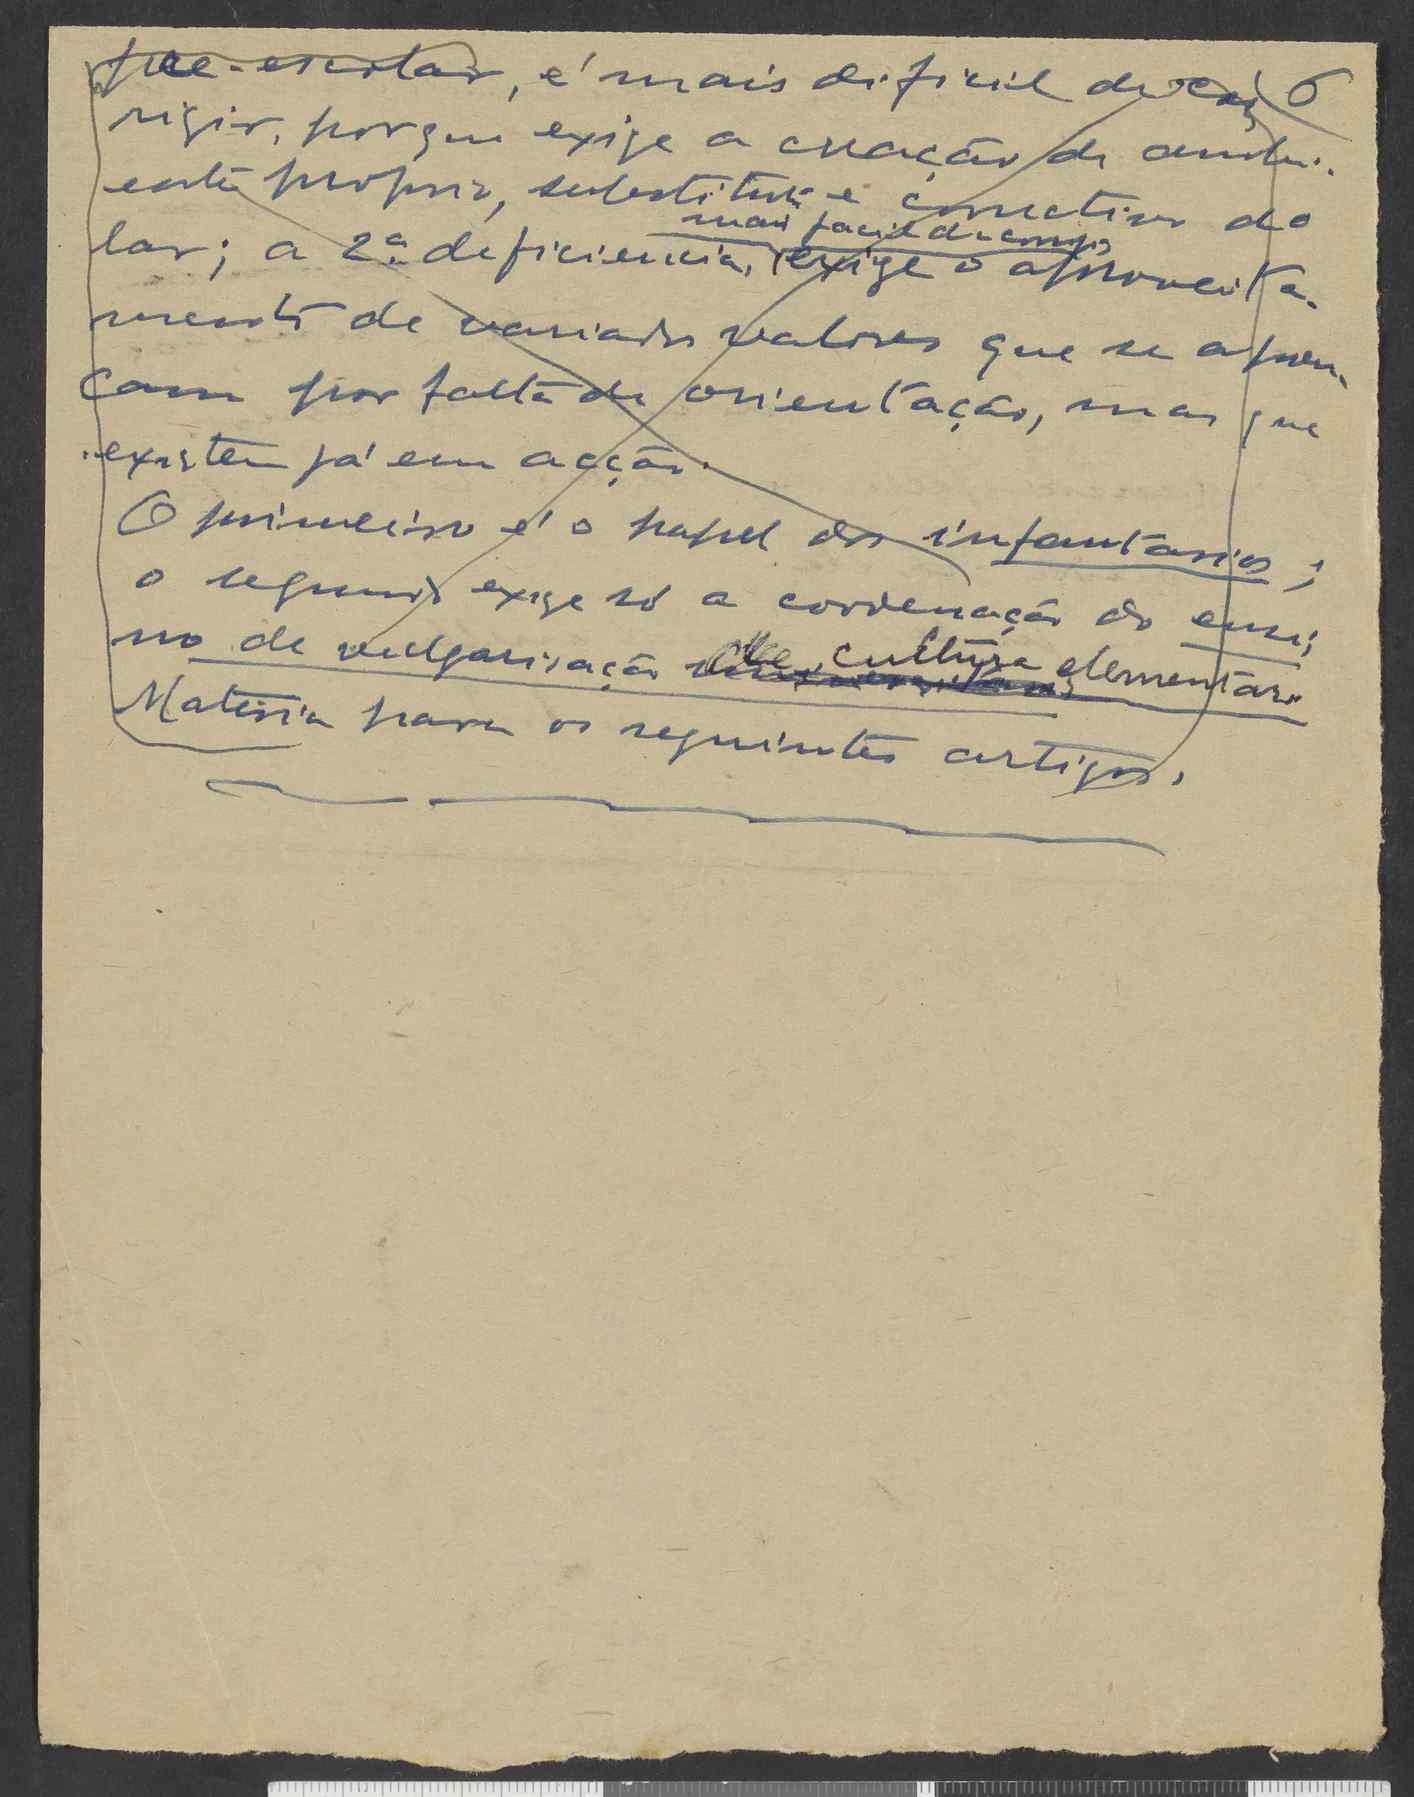 6
pre-escolar, é mais dificil de cor
rigir, porque exige a creação de ambi-
ente proprio, substituto e correctivo do
lar; a 2ª deficiencia, mais facil de corrigir, exige o aproveita-
mento de variados valores que se
çam por falta de orientação, mas que
existem já em acção.
O primeiro é o papel dos infantarios;
o segundo exige só a coordenação do ensi
no de vulgarisação de cultura elementar.
Materia para os seguintes artigos.